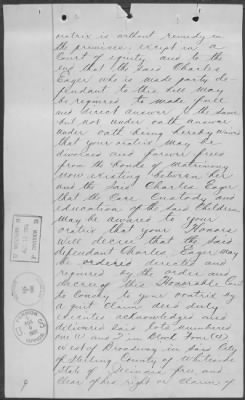 oratrix is without remedy in
the premises except in a
Court of equity and to the
end that the said Charles
Eager who is made party de-
fendant to this bill may
be required to make full
and direct answer to the same
but not under oath answer
under oath being hereby waived
that your oratrix may be
divorced and forever freed
from the bonds of matrimony
now existing between her
and the said Charles Eager
that the Care Custody and
education of the said Children
may be awarded to your
oratrix that your Honors
will decree that the said
defendant Charles Eager may
be ordered directed and
required by the order and
decree of this Honorable Court
to Convey to your oratrix by
quit Claim deed duly
executed acknowledged and
delivered said lots numbered
one (1) and 2 in block four (4)
West of Broadway in said City
of Sterling County of Whiteside
State of Illinois free and
clear of his right or claim of
9